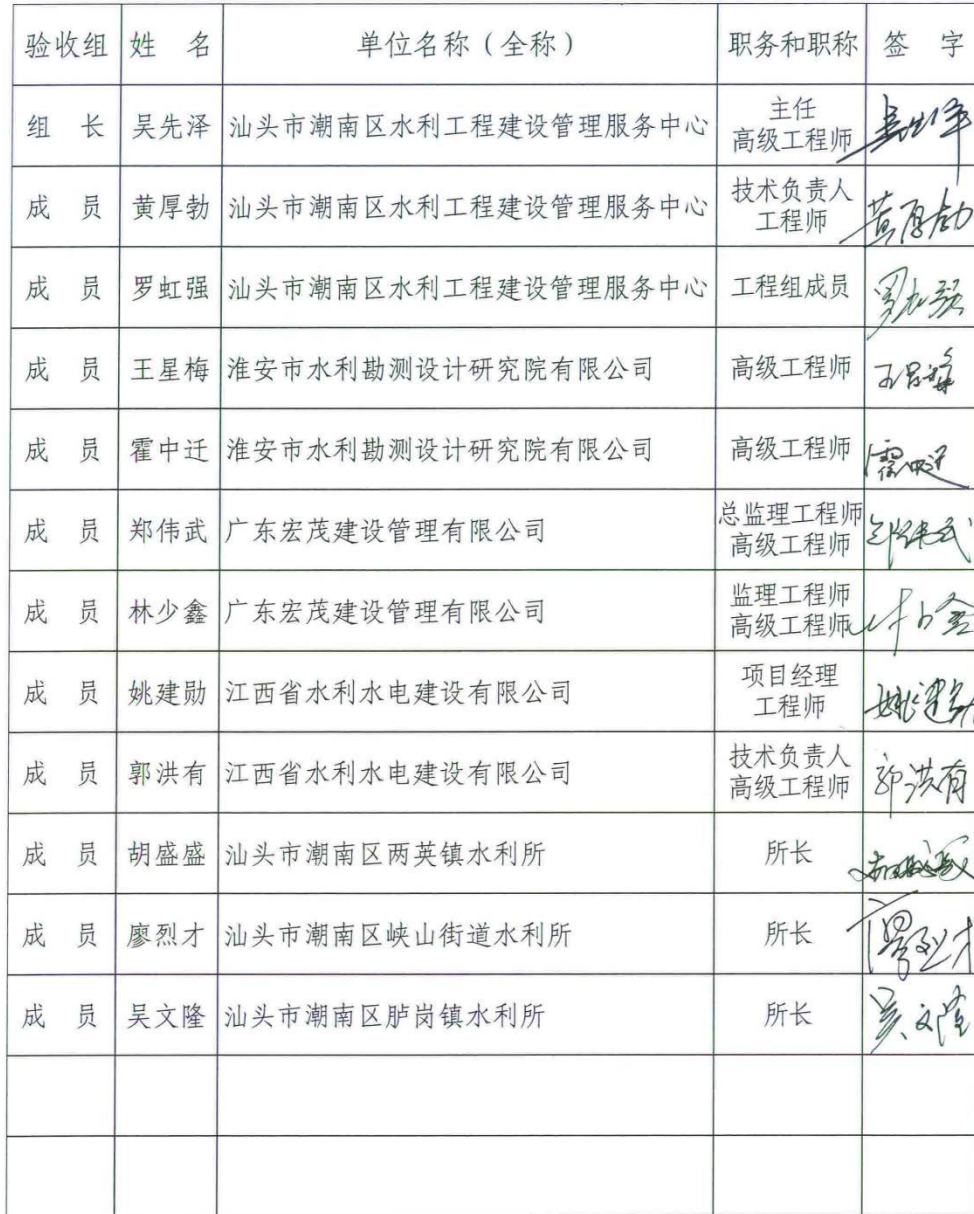 验收组 姓 名 单位名称（全称） 职务和职称 签 字
组 长 吴先泽 汕头市潮南区水利工程建设管理服务中心 主任
高级工程师
成 员 黄厚勃 汕头市潮南区水利工程建设管理服务中心 技术负责人
工程师 黄厚勃
成 员 罗虹强 汕头市潮南区水利工程建设管理服务中心 工程组成员 罗虹强
成 员 王星梅 淮安市水利勘测设计研究院有限公司 高级工程师 王星梅
成 员 霍中迁 淮安市水利勘测设计研究院有限公司 高级工程师 霍中迁
成 员 郑伟武 广东宏茂建设管理有限公司 总监理工程师
高级工程师 郑伟武
成 员 林少鑫 广东宏茂建设管理有限公司 监理工程师
高级工程师
成 员 姚建勋 江西省水利水电建设有限公司 项目经理
工程师 姚建勋
成 员 郭洪有 江西省水利水电建设有限公司 技术负责人
高级工程师 郭洪有
成 员 胡盛盛 汕头市潮南区两英镇水利所 所长
成 员 廖烈才 汕头市潮南区峡山街道水利所 所长 廖烈才
成 员 吴文隆 汕头市潮南区胪岗镇水利所 所长 吴文隆